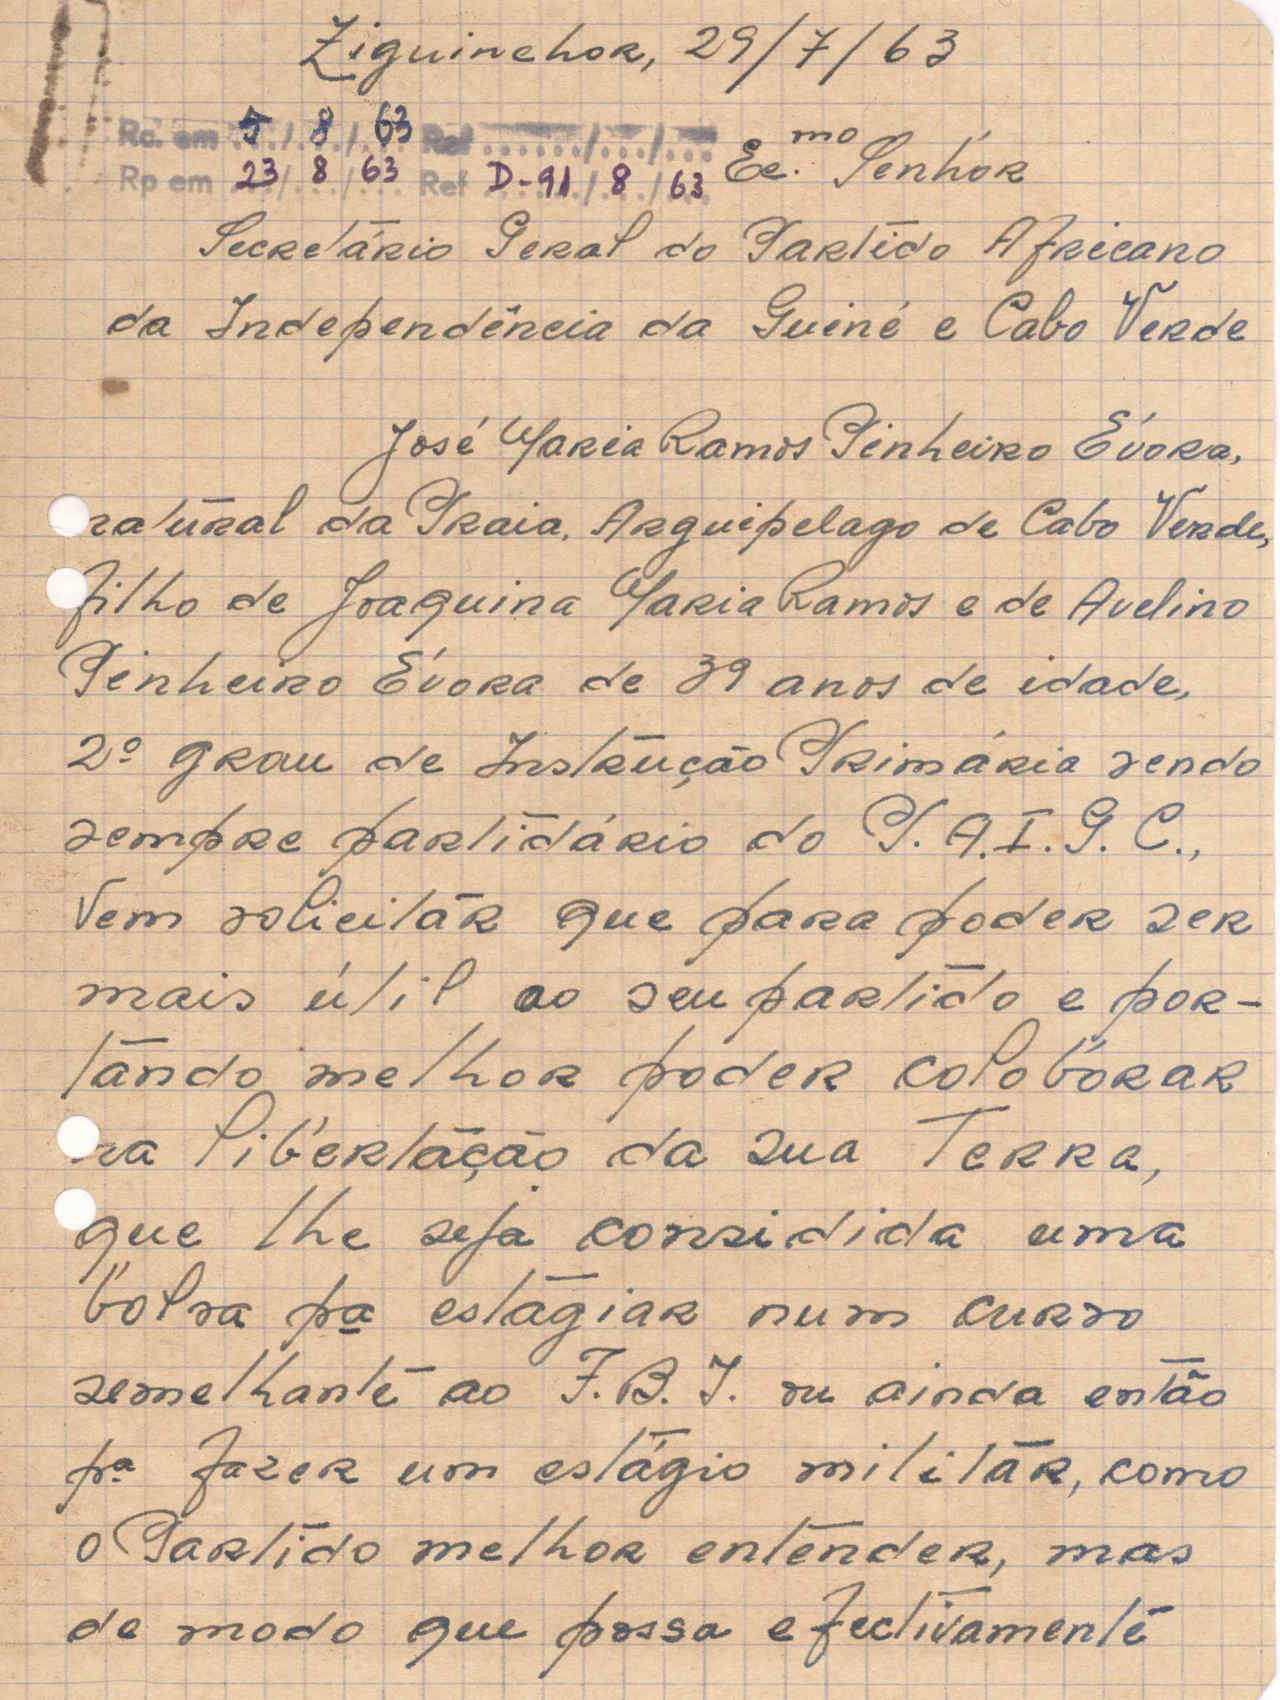 Ziguinchor, 29/7/63
Rc. em 5/8/63 Ref ....../.../...
Rp em 23/8/63 Ref D-91/8/63
Ex.mo Senhor
Secretário Geral do Partido Africano
da Independência da Guiné e Cabo Verde
José Maria Ramos Pinheiro Évora,
natural da Praia, Arquipelago de Cabo Verde,
filho de Joaquina Maria Ramos e de Avelino
Pinheiro Évora de 39 anos de idade,
2º grau de Instrução Primária sendo
sempre partidário do P.A.I.G.C.,
Vem solicitar que para poder ser
mais útil ao seu partido e por-
tando melhor poder colobórar
na libertação da sua Terra,
que lhe seja considida uma
bolsa pa estágiar num curso
semelhante ao F.B.I. ou ainda então
pa fazer um estágio militar, como
o Partido melhor entender, mas
de modo que possa efectivamente